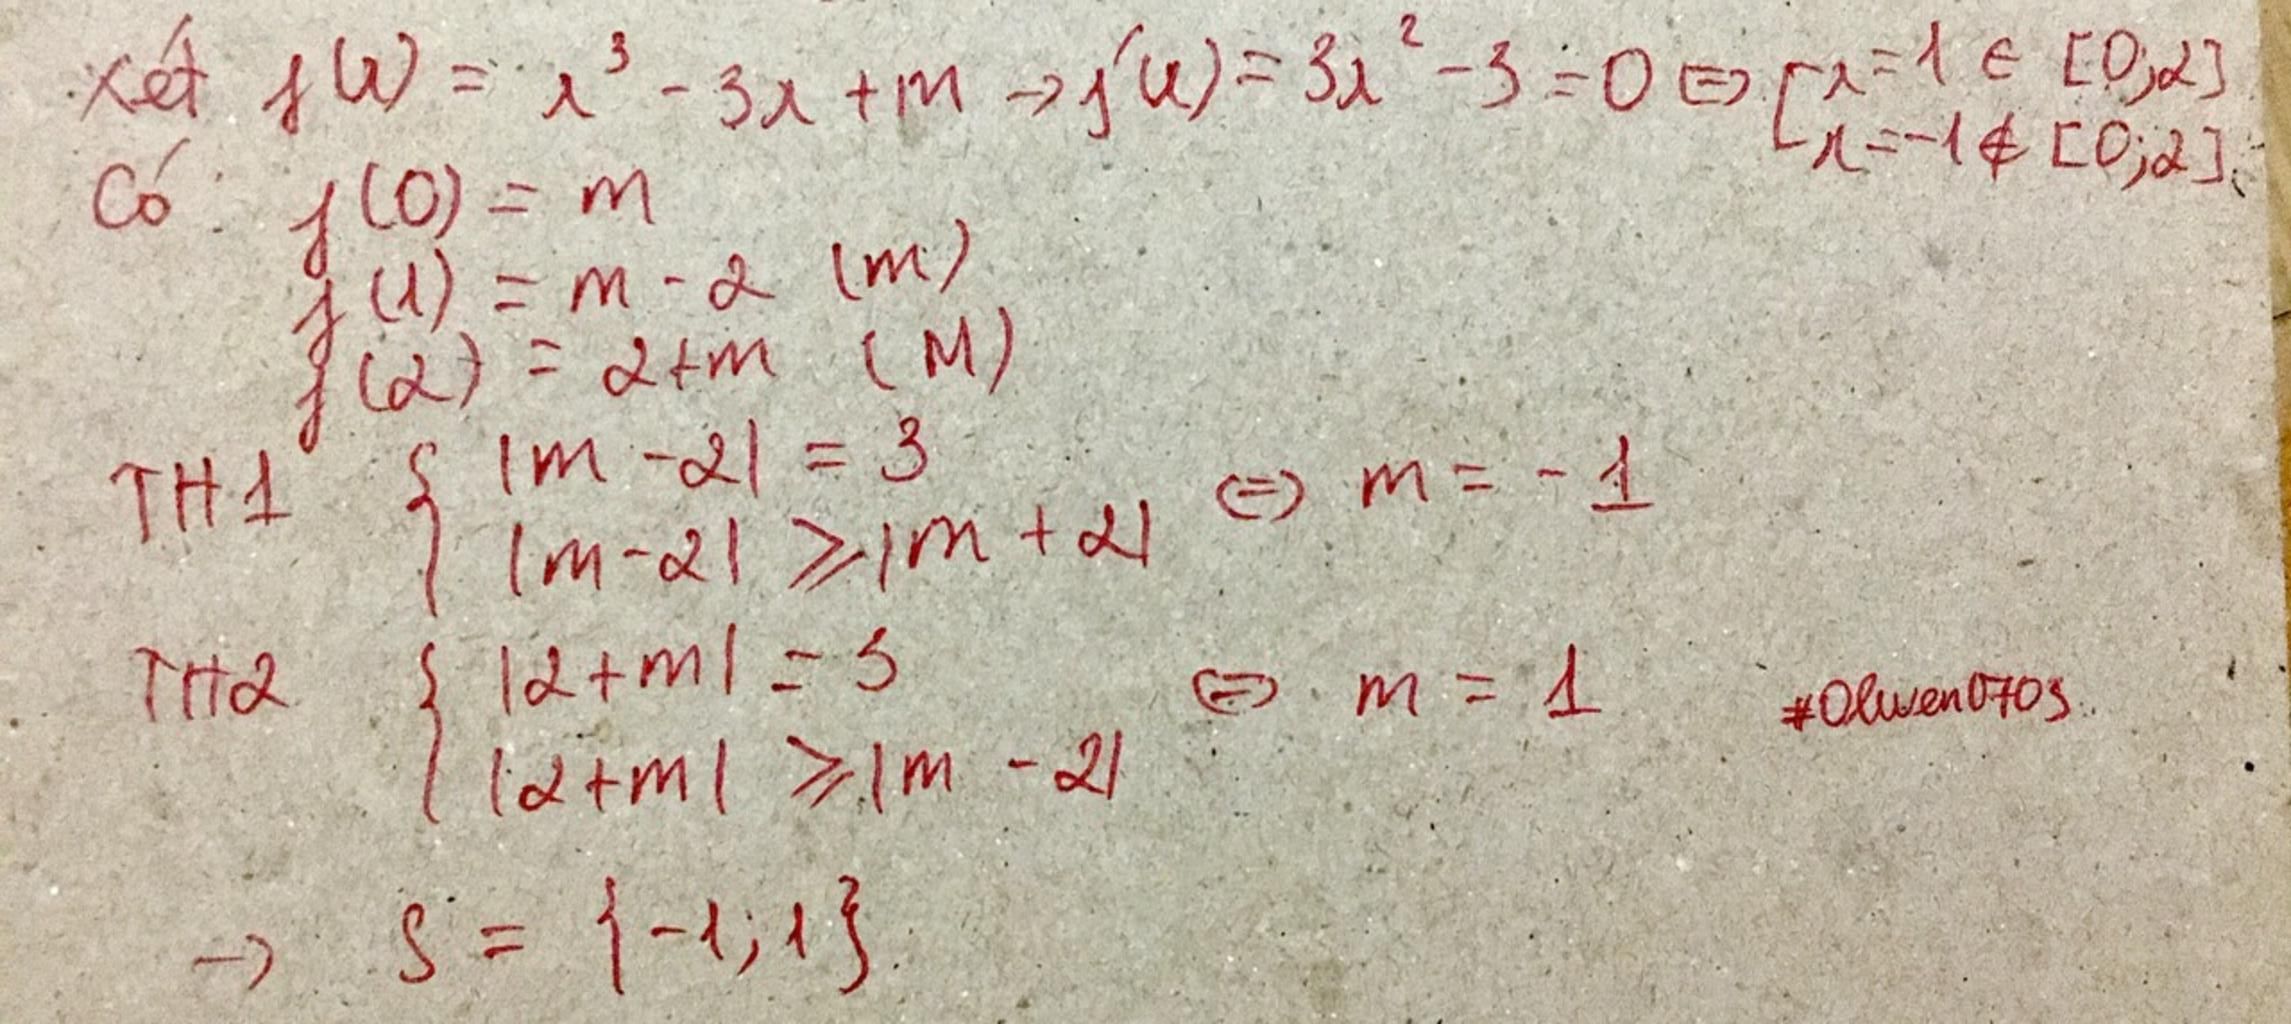 Xét f(x) = x³ - 3x + m → f'(x) = 3x² - 3 = 0 ⇔ [ x = 1 ∈ [0;2]
x = -1 ∉ [0;2]
Có: f(0) = m
f(1) = m - 2 (m)
f(2) = 2+m (M)
TH1 { |m - 2| = 3
|m - 2| ⩾ |m + 2| ⇔ m = -1
TH2 { |2+m| = 3
|2+m| ⩾ |m - 2| ⇔ m = 1
#Olwen0703
→ S = {-1; 1}